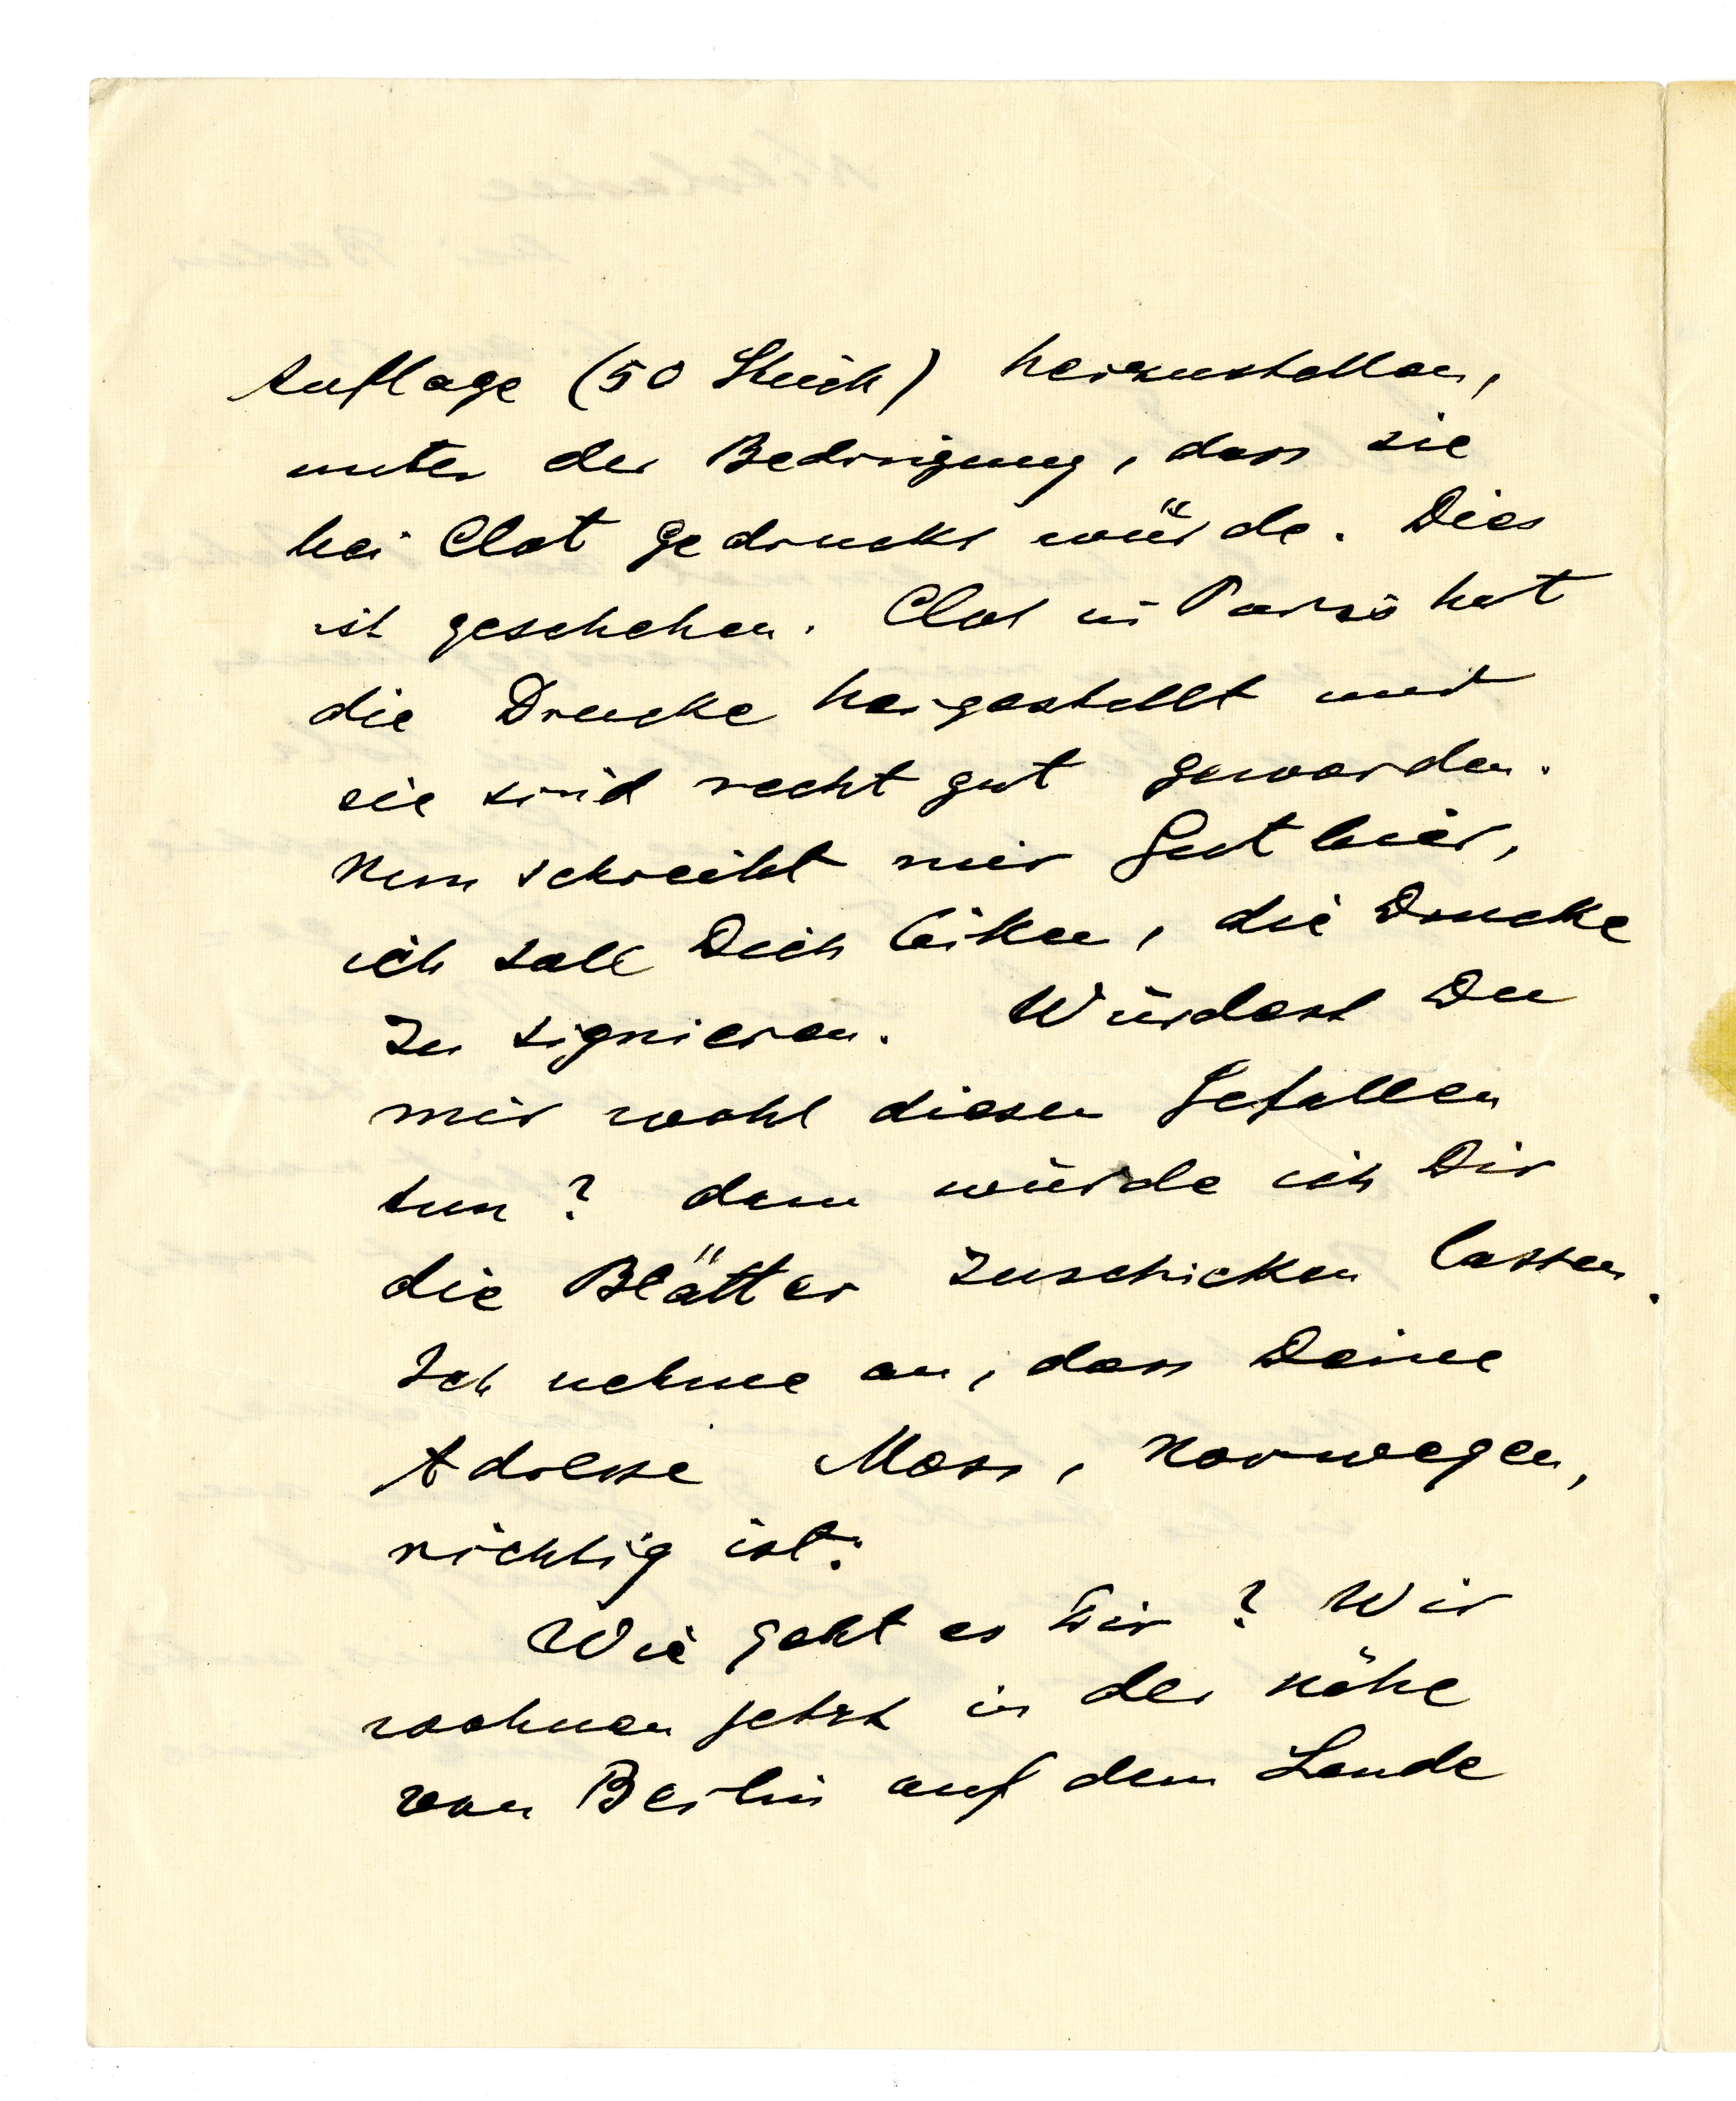 Auflage (50 Stück) herzustellen,
unter der Bedingung, dass sie
bei Clot gedruckt würde. Dies
ist geschehen. Clot in Paris hat
die Drucke hergestellt und
sie sind recht gut geworden.
Nun schreibt mir Gutbier,
ich soll Dich bitten, die Drucke
zu signieren. Würdest Du
mir wohl diesen Gefallen
tun? dann würde ich Dir
die Blätter zuschicken lassen.
Ich nehme an, dass Deine
Adresse Moss, Norwegen,
richtig ist.
Wie geht es Dir? Wir
wohnen jetzt in der Nähe
von Berlin auf dem Lande